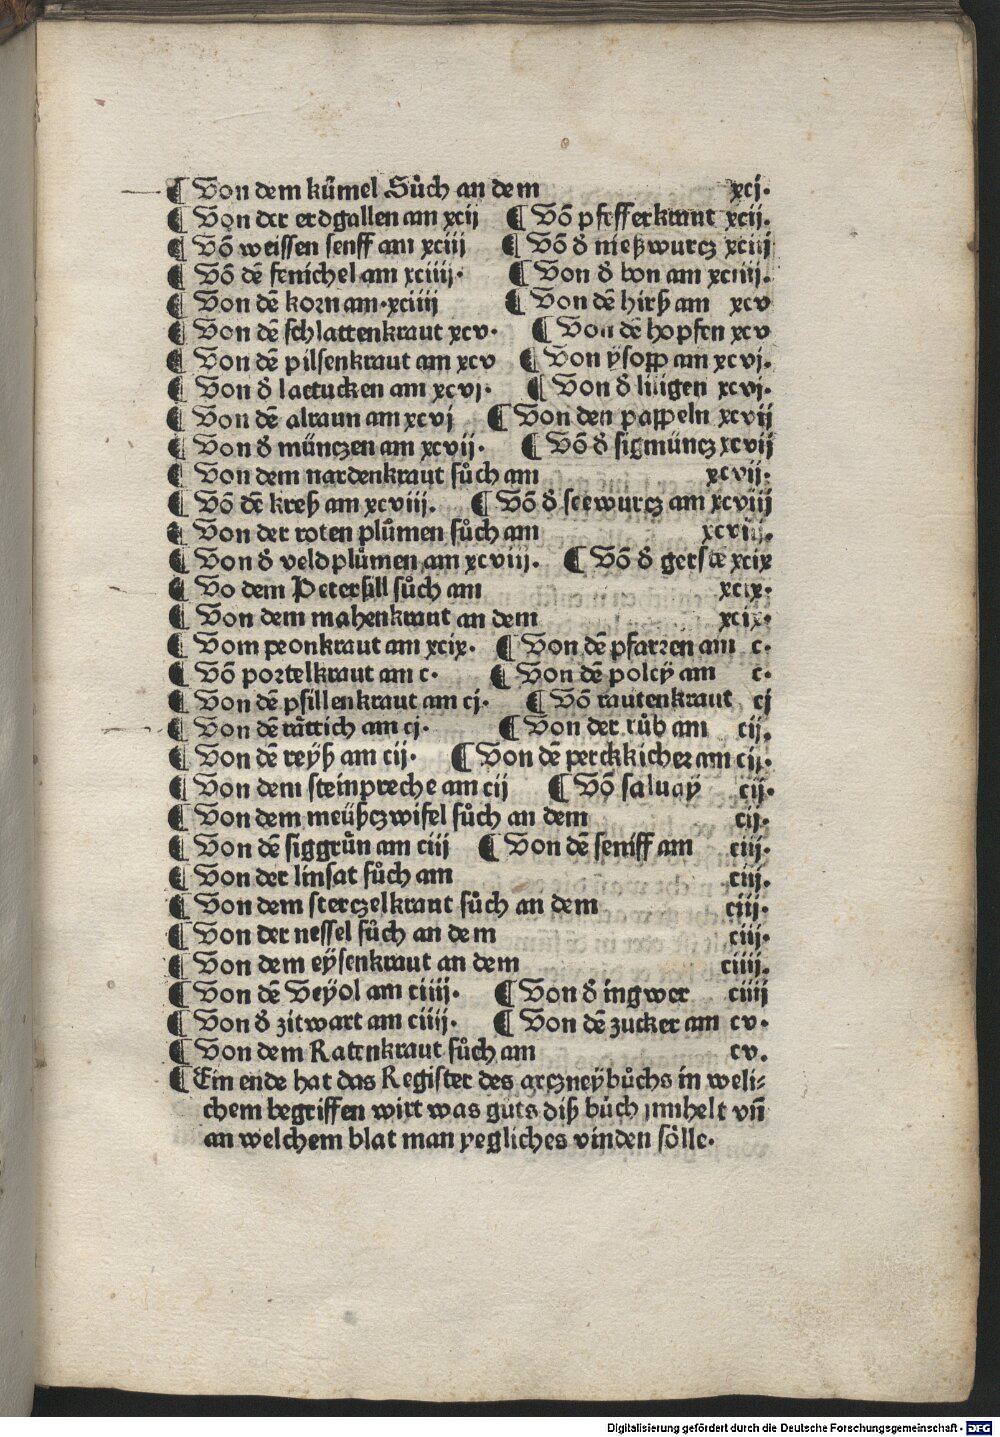 ¶ Von dem kümel Sůch an dem xcj.
¶ Von der erdgallen am xcij ¶ Võ pfefferkraut xcij.
¶ Võ weissen senff am xciij ¶ Võ d̕ nießwurcz xciij
¶ Võ dẽ fenichel am xciiij. ¶ Von d̕ bon am xciiij.
¶ Von dẽ korn am.xciiij ¶ Von dẽ hirß am xcv
¶ Von dẽ schlattenkraut xcv. ¶ Von dẽ hopfen xcv
¶ Von dẽ pilsenkraut am xcv ¶ Von ÿsopp am xcvj.
¶ Von d̕ lactucken am xcvj. ¶ Von d̕ liligen xcvj.
¶ Von dẽ alraun am xcvj ¶ Von den pappeln xcvij
¶ Von d̕ münczen am xcvij. ¶ Võ d̕ sigmüncz xcvij
¶ Von dem nardenkraut sůch am xcvij.
¶ Võ dẽ kreß am xcviij. ¶ Võ d̕ seewurcz am xcviij
¶ Von der roten plůmen sůch am xcviij.
¶ Von d̕ veldplůmen am xcviij. ¶ Võ d̕ gerstẽ xcix
¶ Vo dem Petersill sůch am xcix.
¶ Von dem mahenkraut an dem xcix.
¶ Vom peonkraut am xcix. ¶ Von dẽ pfarren am c.
¶ Võ portelkraut am c. ¶ Von dẽ poleÿ am c.
¶ Von dẽ psillenkraut am cj. ¶ Võ rautenkraut cj
¶ Von dẽ rättich am cj. ¶ Von der růb am cij.
¶ Von dẽ reÿß am cij. ¶ Von dẽ perckkicher am cij.
¶ Von dem steinpreche am cij ¶ Võ saluaÿ cij.
¶ Von dem meüßczwifel sůch an dem cij.
¶ Von dẽ siggrůn am ciij ¶ Von dẽ seniff am ciij.
¶ Von der linsat sůch am ciij.
¶ Von dem sterczelkraut sůch an dem ciij.
¶ Von der nessel sůch an dem ciij.
¶ Von dem eÿsenkraut an dem ciiij.
¶ Von dẽ Veÿol am ciiij. ¶ Von d̕ ingwer ciiij
¶ Von d̕ zitwart am ciiij. ¶ Von dẽ zucker am cv.
¶ Von dem Ratenkraut sůch am cv.
¶ Ein ende hat das Register des arczneÿbůchs in weli⸗
chem begriffen wirt was gůts diß bůch innhelt vñ
an welchem blat man yegliches vinden sölle.
Digitalisierung gefördert durch die Deutsche Forschungsgemeinschaft - DFG